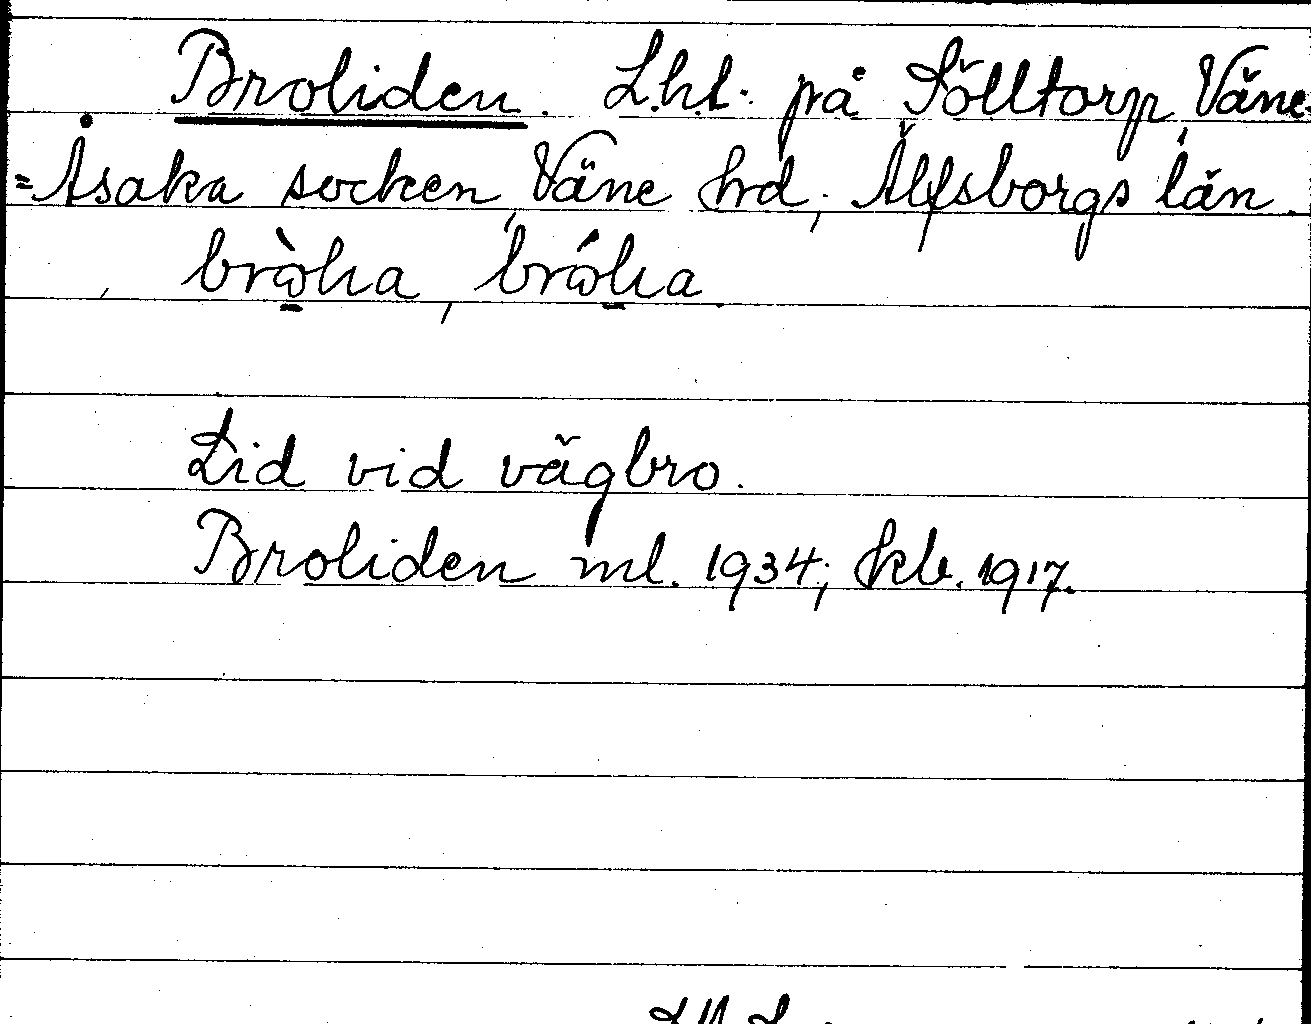 Broliden. Lht. på Sölltorp, Väne-
=Åsaka socken, Väne hrd, Älfsborgs län.
Lid vid vägbro.
Broliden ml. 1934; kb. 1917.